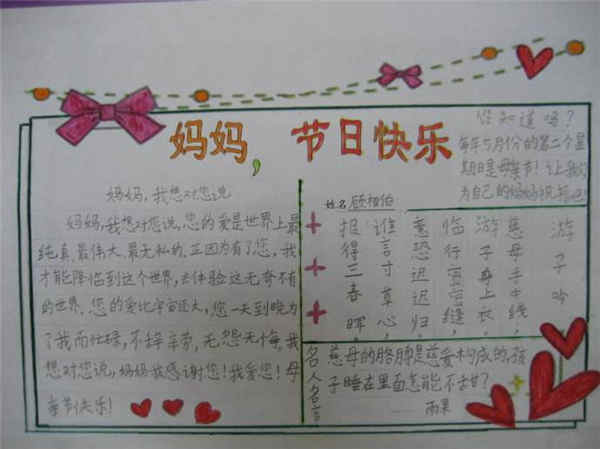 妈妈，节日快乐
您知道吗？
每年5月份的第二个星
期日是母亲节！让我们
为自己的妈妈祝
妈妈，我想对您说
妈妈，我想对您说，您的爱是世界上最
纯真、最伟大、最无私的，正因为有了您，我
才能降临到这个世界，去体验这无奇不有
的世界。您的爱比宇宙还大，您一天到晚为
了我而忙碌，不辞辛劳，无怨无悔，我
想对您说，妈妈我感谢您！我爱您！母
亲节快乐！
姓名
游子吟
慈母手中线，
游子身上衣，
临行密密缝，
意恐迟迟归，
谁言寸草心，
报得三春晖
名人名言
慈母的胳膊是慈爱构成的，孩
子睡在里面怎能不甜？
——雨果